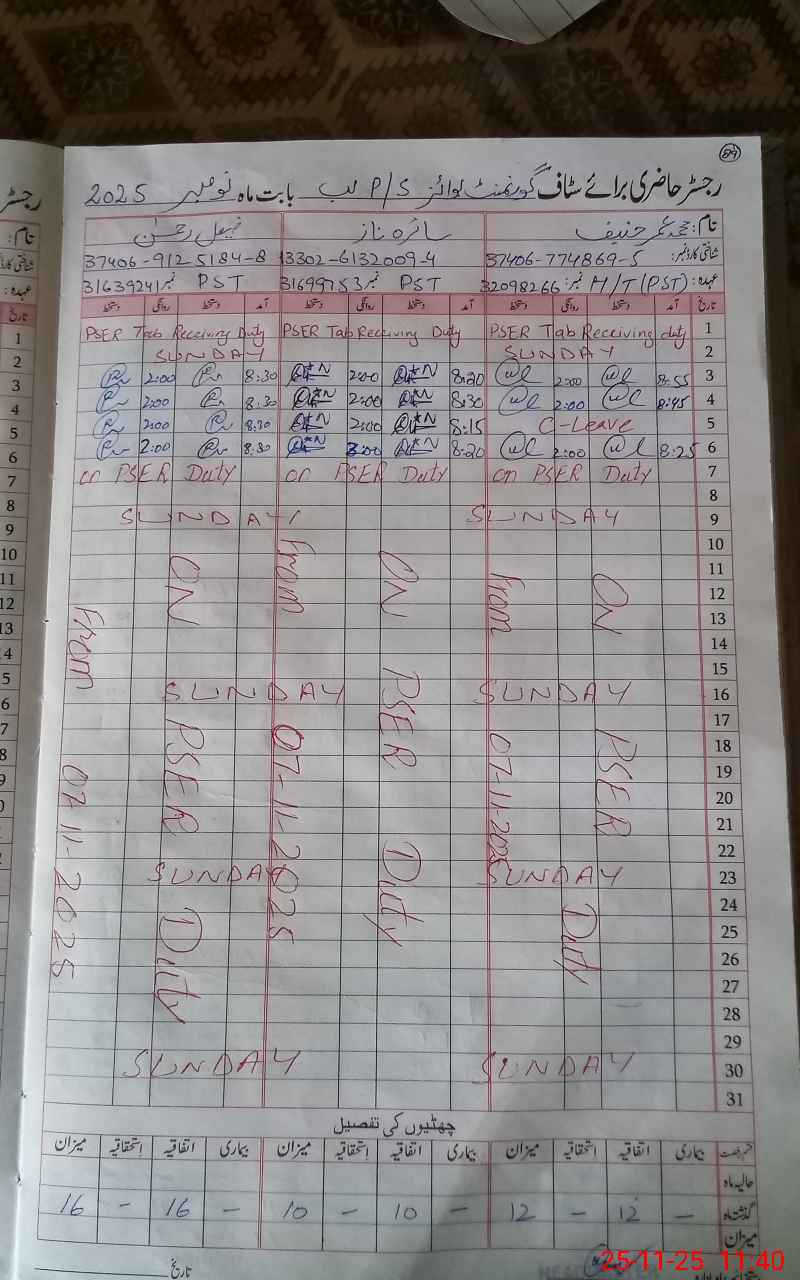 89
رجسٹر حاضری برائے سٹاف گورنمنٹ بوائز P/S لب بابت ماہ نومبر 2025
نام: محمد عمر حنیف سائرہ ناز فیصل رحمٰن
شناختی کارڈ نمبر: 37406-774869-5 13302-6132009-4 37406-9125184-8
عہدہ: H/T (PST) نمبر 32098266 PST نمبر 31699753 PST نمبر 31639241
تاریخ آمد دستخط روانگی دستخط آمد دستخط روانگی دستخط آمد دستخط روانگی دستخط
1 PSER Tab Receiving duty PSER Tab Receiving Duty PSER Tab Receiving Duty
2 SUNDAY SUNDAY
3 8:55 2:00 8:20 2:00 8:30 2:00
4 8:45 2:00 8:30 2:00 8:30 2:00
5 C-Leave 8:15 2:00 8:30 2:00
6 8:25 2:00 8:20 2:00 8:30 2:00
7 on PSER Duty on PSER Duty on PSER Duty
8
9 SUNDAY SUNDAY
10
11
12
13
14
15
16 SUNDAY SUNDAY
17
18
19
20
21
22
23 SUNDAY SUNDAY
24
25
26
27
28
29
30 SUNDAY SUNDAY
31
ON PSER Duty
From 07-11-2025
ON PSER Duty
From 07-11-2025
ON PSER Duty
From 07-11-2025
چھٹیوں کی تفصیل
قسم رخصت بیماری اتفاقیہ استحقاقیہ میزان بیماری اتفاقیہ استحقاقیہ میزان بیماری اتفاقیہ استحقاقیہ میزان
حالیہ ماہ
گذشتہ ماہ - 12 - 12 - 10 - 10 - 16 - 16
میزان
تاریخ
25-11-25 11:40